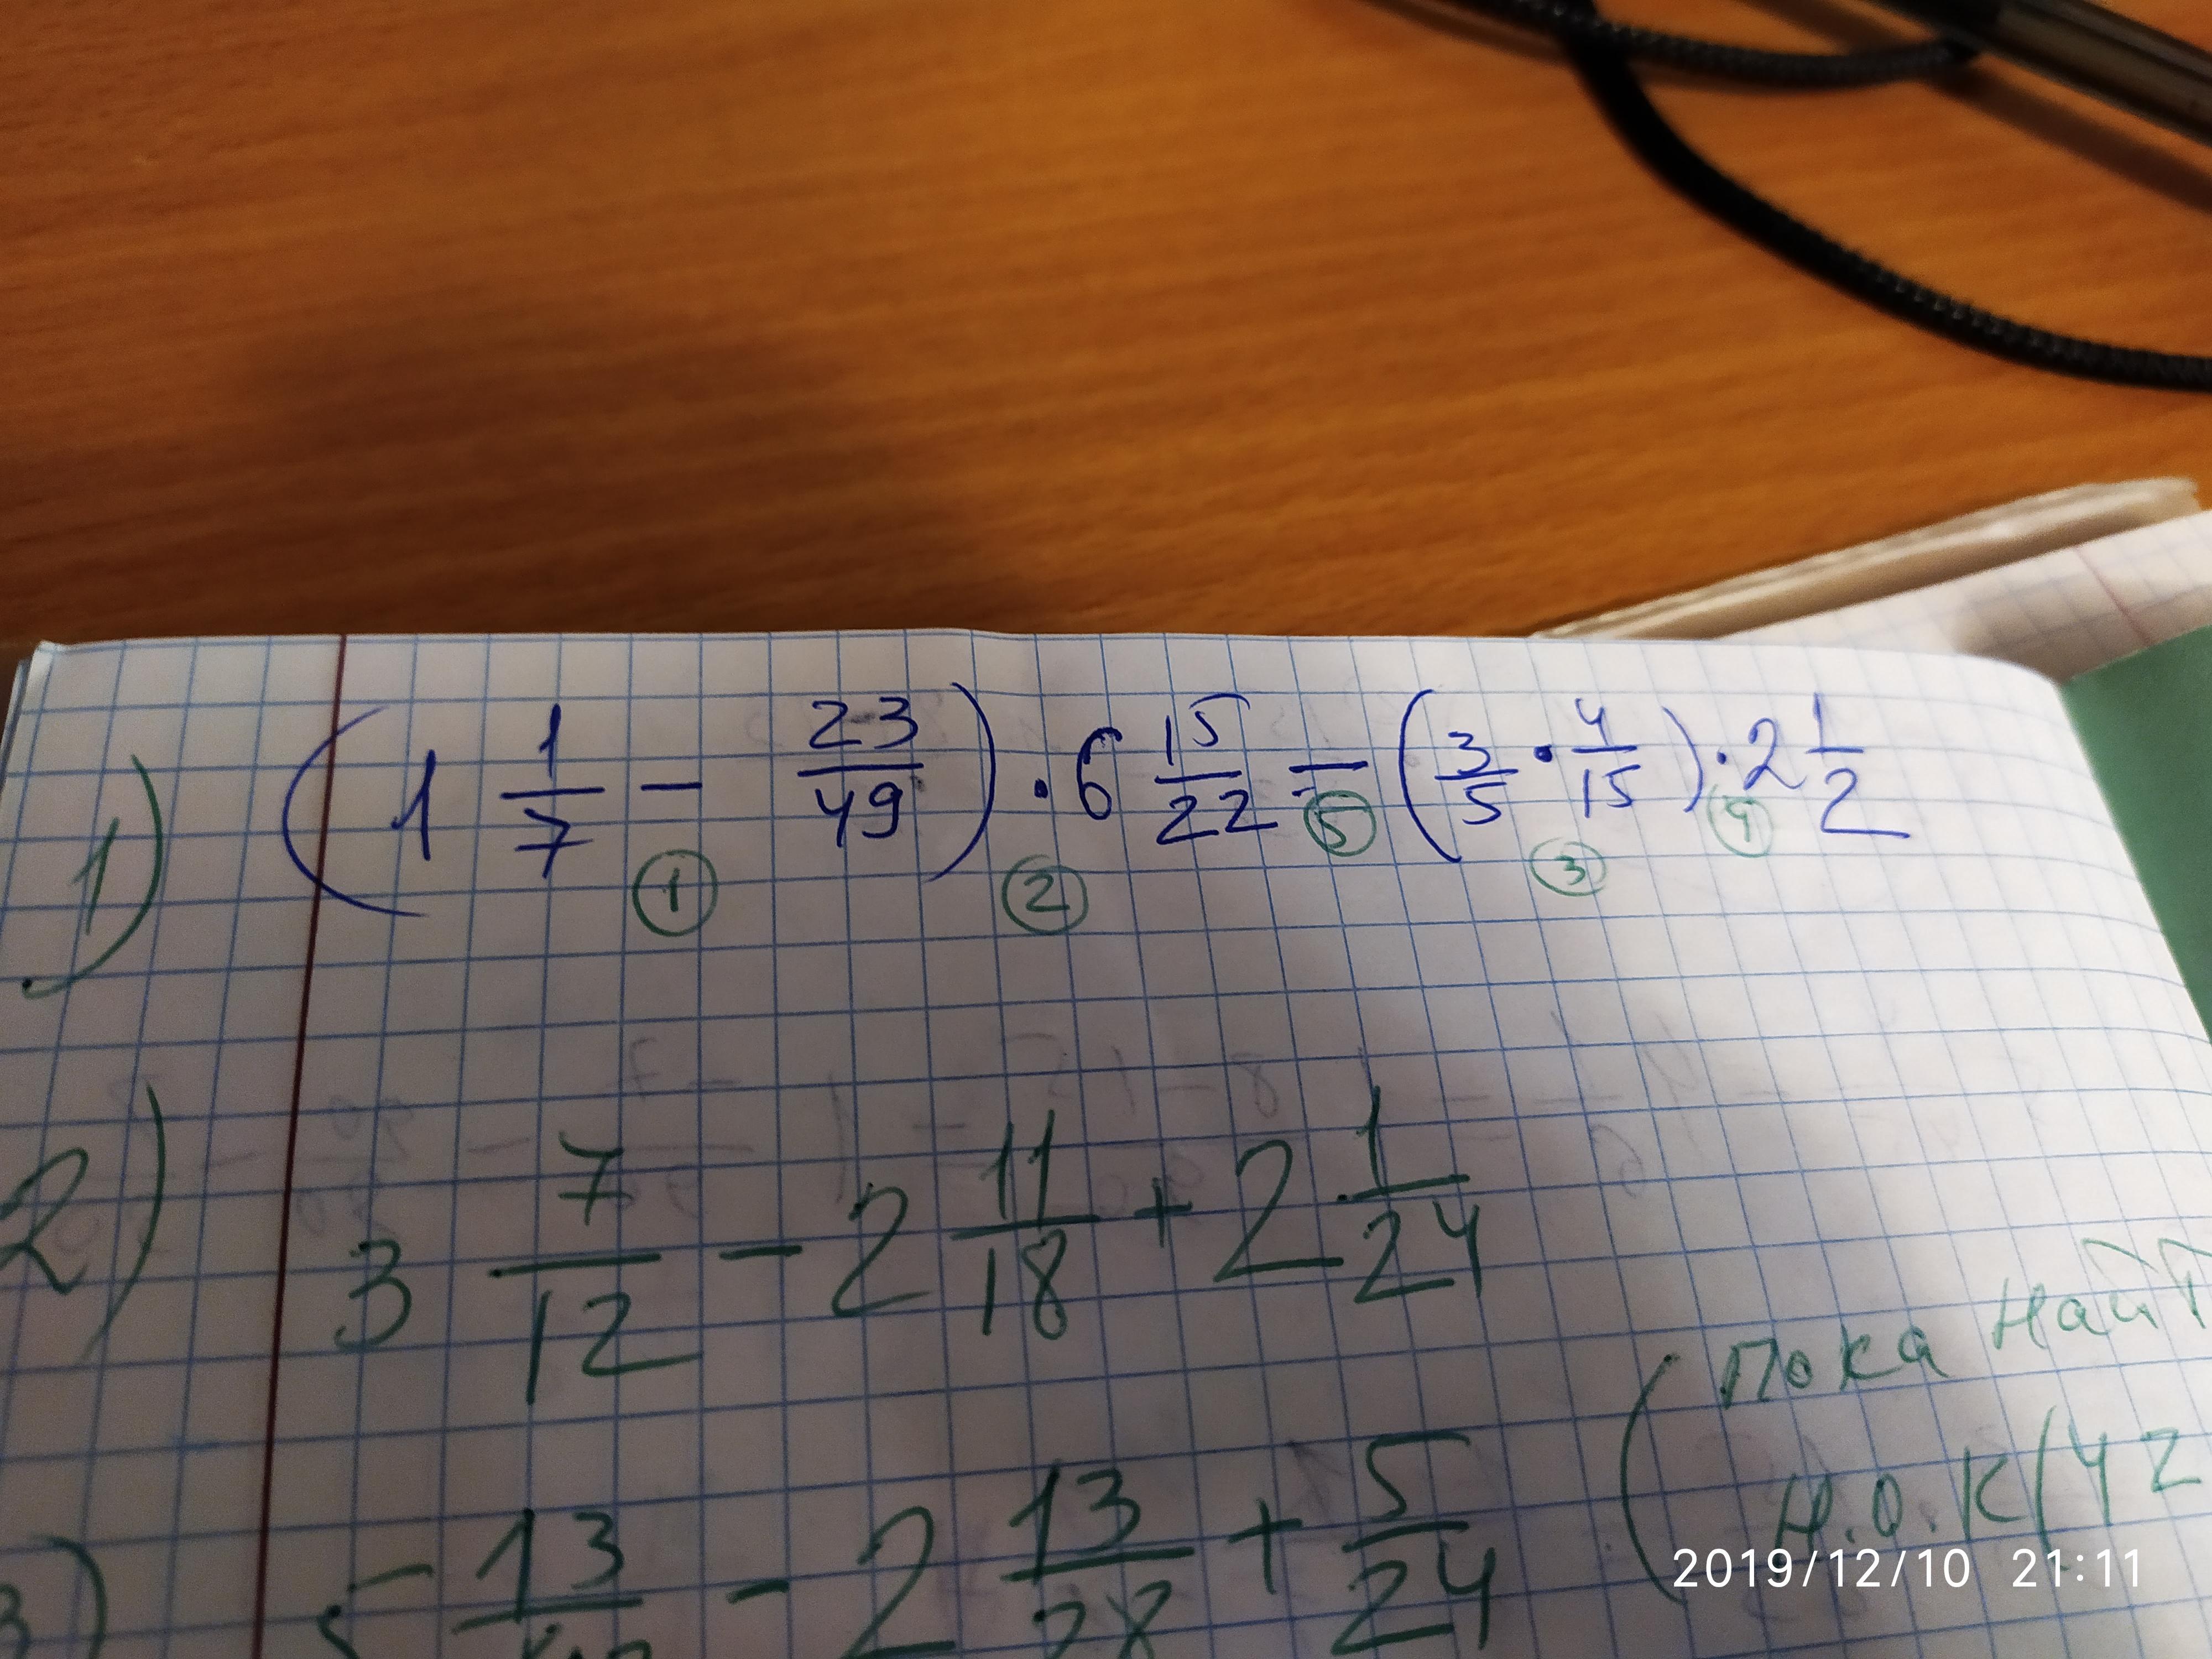 1) (1 1/7 − 23/49) · 6 15/22 − (3/5 · 4/15) · 2 1/2
① ② ⑤ ③ ④
2) 3 7/12 − 2 11/18 + 2 1/24
(Пока найт
3) 5 13/ − 2 13/28 + 5/24
Н.О.К(42
2019/12/10 21:11